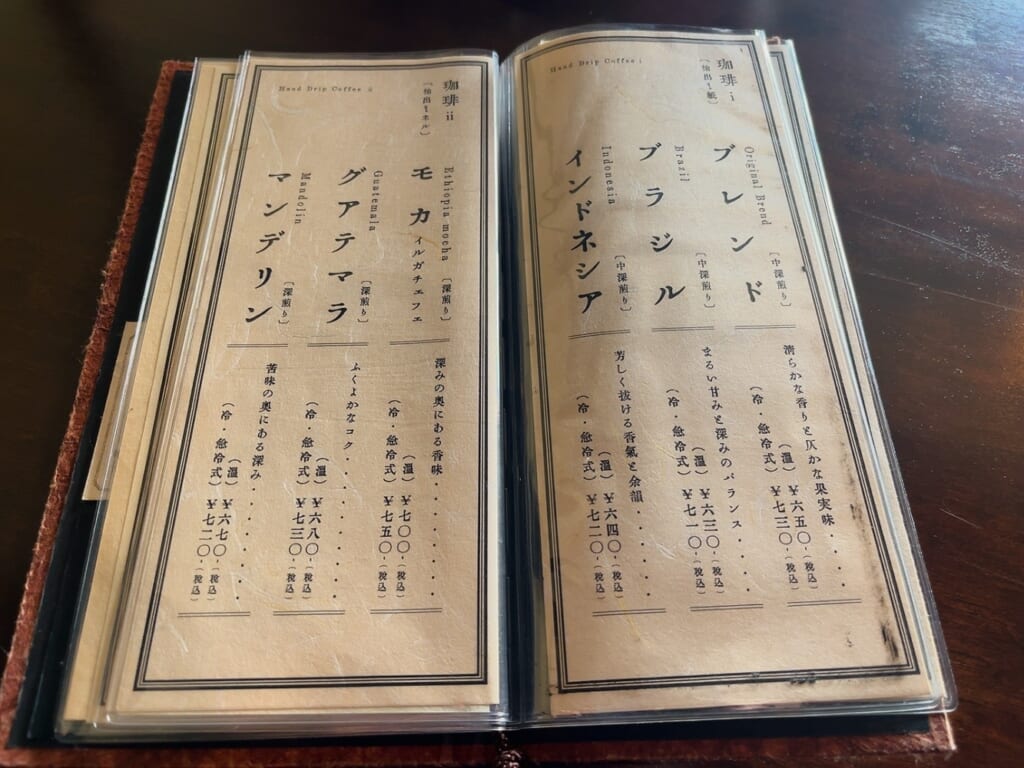 珈琲 i
Hand Drip Coffee i
〔抽出ー紙〕
Original Brend
ブレンド
〔中深煎り〕
清らかな香りと仄かな果実味・・・・
(温) ¥六五〇-(税込)
(冷・急冷式) ¥七三〇-(税込)
Brazil
ブラジル
〔中深煎り〕
まるい甘みと深みのバランス・・・・
(温) ¥六三〇-(税込)
(冷・急冷式) ¥七一〇-(税込)
Indonesia
インドネシア
〔中深煎り〕
芳しく抜ける香氣と余韻・・・・・・
(温) ¥六四〇-(税込)
(冷・急冷式) ¥七二〇-(税込)
珈琲 ii
Hand Drip Coffee ii
〔抽出ーネル〕
Ethiopia mocha
モカ イルガチェフェ
〔深煎り〕
深みの奥にある香味・・・・・・
(温) ¥七〇〇-(税込)
(冷・急冷式) ¥七五〇-(税込)
Guatemala
グアテマラ
〔深煎り〕
ふくよかなコク・・・・・・・・
(温) ¥六八〇-(税込)
(冷・急冷式) ¥七三〇-(税込)
Mandolin
マンデリン
〔深煎り〕
苦味の奥にある深み・・・・・・
(温) ¥六七〇-(税込)
(冷・急冷式) ¥七二〇-(税込)